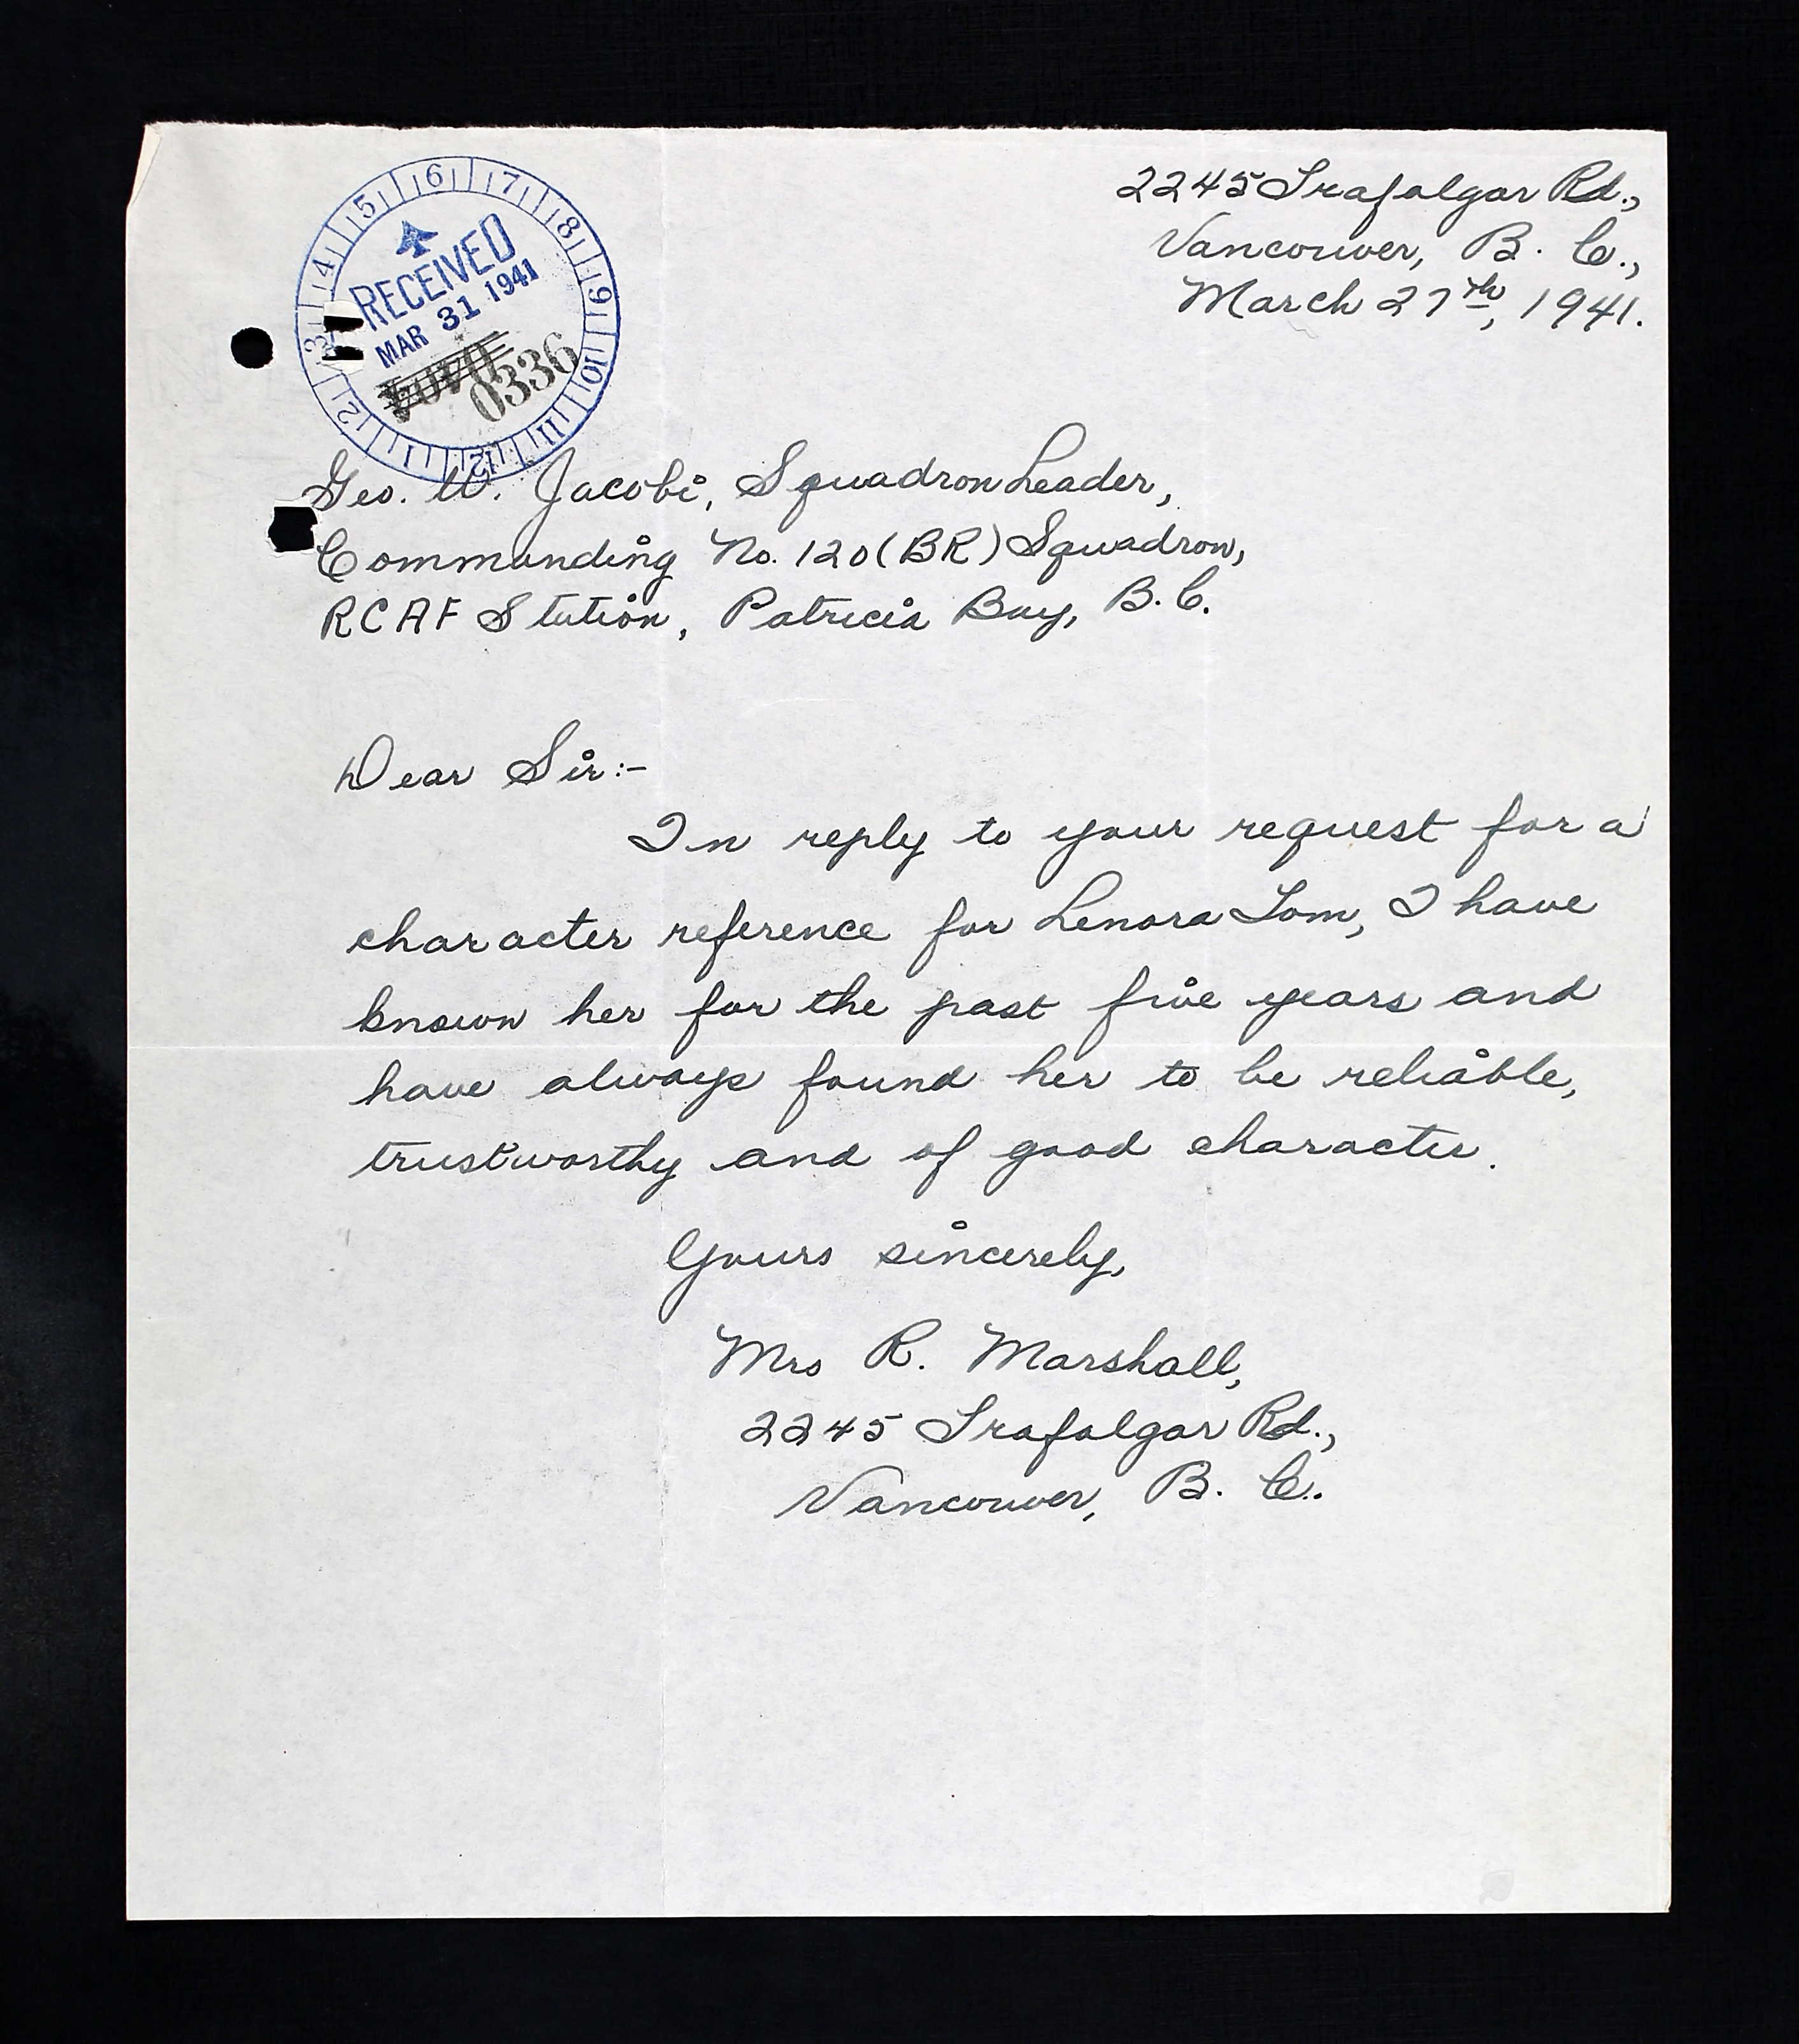 2245 Trafalgar Rd.,
Vancouver, B. C.,
March 27th, 1941.
6 7 8 9 10 11 12 1 2 3 4 5
RECEIVED
MAR 31 1941
0336
Geo. W. Jacobi, Squadron Leader,
Commanding No. 120 (BR) Squadron,
RCAF Station, Patricia Bay, B.C.
Dear Sir:-
In reply to your request for a
character reference for Lenora Tom, I have
known her for the past five years and
have always found her to be reliable,
trustworthy and of good character.
Yours sincerely,
Mrs R. Marshall,
2245 Trafalgar Rd.,
Vancouver, B. C.